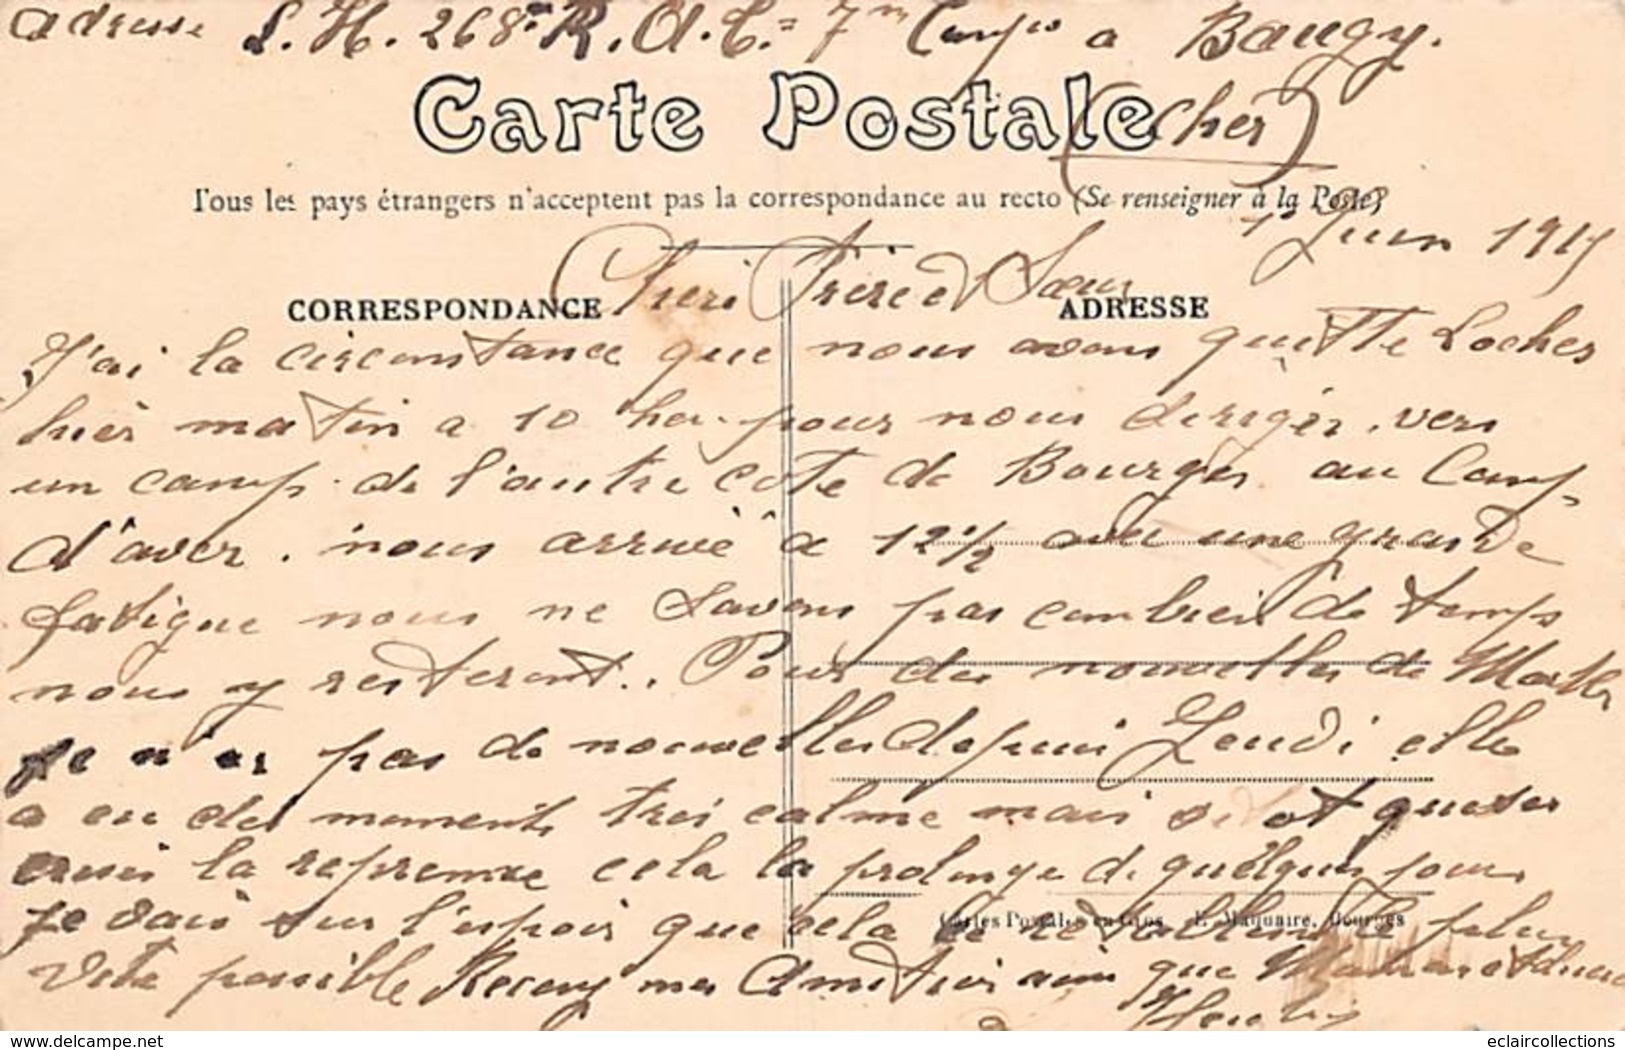 adresse L. H. 268e R. A. C. = 7m Camp a Baugy.
Carte Postale (Cher)
Tous les pays étrangers n'acceptent pas la correspondance au recto (Se renseigner à la Poste)
1r Juin 1915
Cheri Frère et Sœur
CORRESPONDANCE
ADRESSE
J'ai la circonstance que nous avons quitte Loches
hièr matin a 10 her pour nous dirigér vers
un camp de l'autre cote de Bourges au Camp
d'avor. nous arrivé à 12 1/2 avec une grande
fatigue nous ne Savons pas combien de temps
nous y resteront. Pour des nouvelles de
Je n'ai pas de nouvelles depuis Jeudi elle
a eu des moments tres calme mais
la reprenne cela la prolonge de quélques jours
Je vais sur l'espoir que cela le plus
Vite possible mes Amitier ainsi que
Cartes Postales en Gros E. Maquaire, Bourges
delcampe.net
eclaircollections